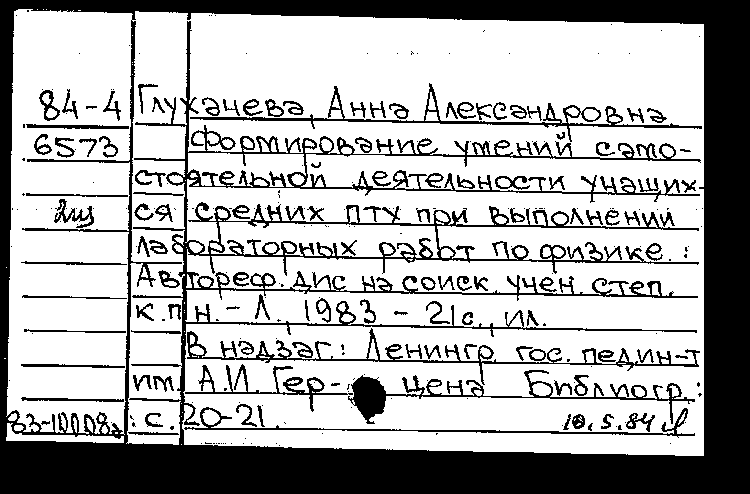 84-4 Глухачева, Анна Александровна.
6573 Формирование умений само-
стоятельной деятельности учащих-
2из ся средних ПТУ при выполнении
лабораторных работ по физике. :
Автореф. дис на соиск. учен. степ.
к.п н. - Л., 1983 - 21с., ил.
В надзаг.: Ленингр. гос. педин-т
им. А.И. Гер- цена Библиогр.:
83-10008а : с. 20-21. 10.5.84